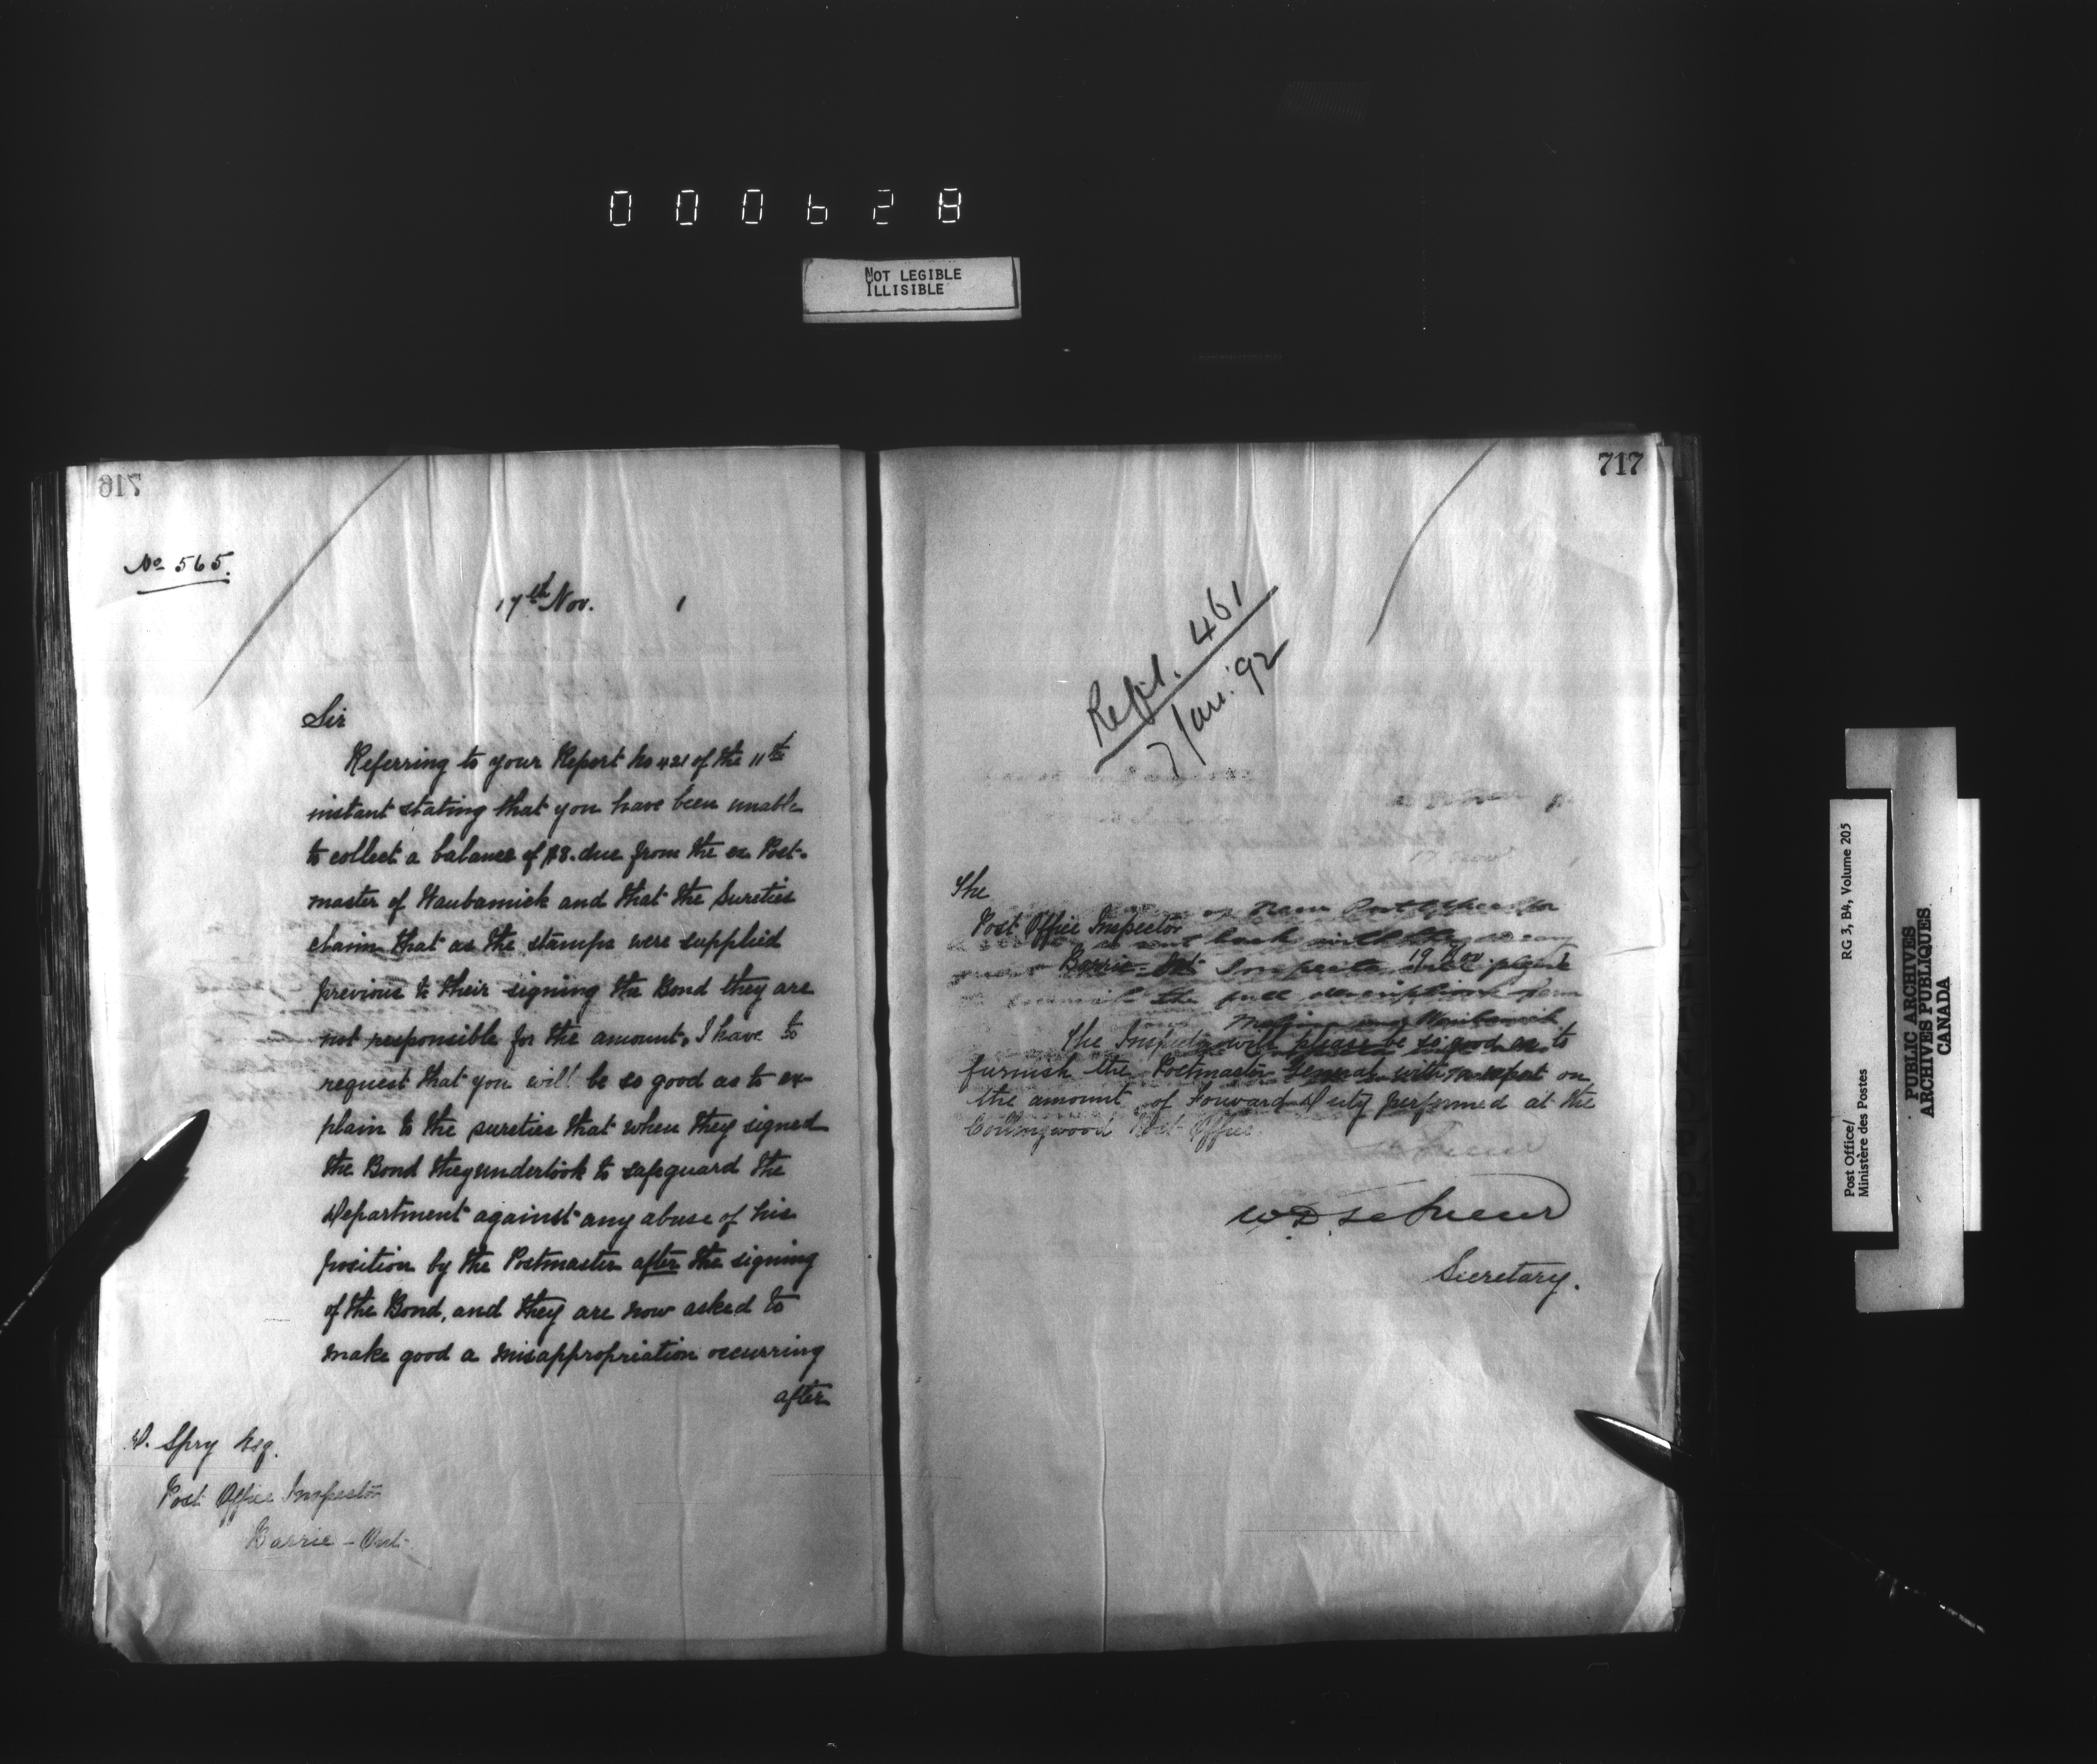 000628
NOT LEGIBLE
ILLISIBLE
No 565.
17th Nov. 1
Sir
Referring to your Report No 421 of the 11th
instant stating that you have been unable
to collect a balance of $8. due from the ex Post-
master of Waubamick and that the Sureties
claim that as the stamps were supplied
previous to their signing the Bond they are
not responsible for the amount, I have to
request that you will be so good as to ex-
plain to the sureties that when they signed
the Bond they undertook to safeguard the
Department against any abuse of his
position by the Postmaster after the signing
of the Bond, and they are now asked to
make good a misappropriation occurring
after
D. Spry Esq.
Post Office Inspector
Barrie - Ont.
717
461
7 Jan. '92
The
Post Office Inspector
Barrie - Ont
19 Nov
The Inspector will please be so good as to
furnish the Postmaster General with a report on
the amount of Forward Duty performed at the
Collingwood Post Office.
W.D. LeSueur
Secretary.
Post Office/
Ministère des Postes
RG 3, B4, Volume 205
PUBLIC ARCHIVES
ARCHIVES PUBLIQUES
CANADA